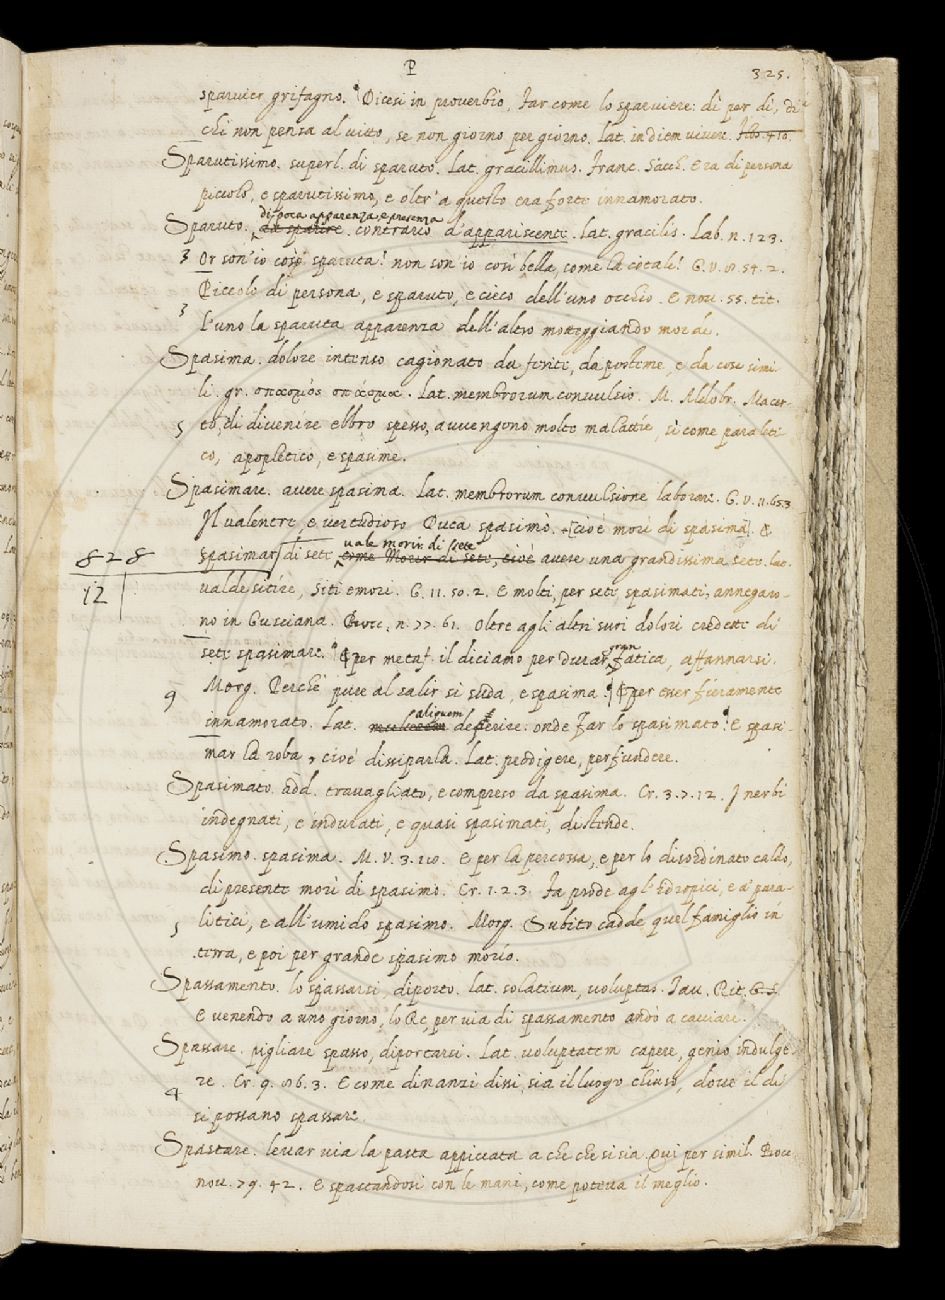 P
325.
sparvier grifagno. Dicesi in proverbio, Far come lo sparviere: di per di, di
chi non pensa al vitto, se non giorno per giorno. lat. in diem vivere.
Sparutissimo. superl. di sparuto. Lat. gracillimus. Franc. Sacch. Era di persona
piccolo, e sparutissimo, e oltr' a questo era forte innamorato.
di poca apparenza, e presenza
Sparuto. contrario d'appariscente. lat. gracilis. Lab. n. 123.
3 Or son' io così sparuta! non son' io così bella, come la cotale! G. V. 8. 54. 2.
Piccolo di persona, e sparuto, e cieco dell'uno occhio. E nov. 55. tit.
3 L'uno la sparuta apparenza dell'altro motteggiando morde.
Spasima. dolore intenso cagionato da ferite, da posteme, e da cose simi-
li. gr. σπασμός σπάσμα. Lat. membrorum convulsio. M. Aldobr. Maestr-
5 to, di divenire ebbro spesso, avvengono molte malattie, sì come paraliti-
co, apopletico, e spasime.
Spasimare. avere spasima. Lat. membrorum convulsione laborare. G. V. 11. 65. 3
Il valentre, e vertudioso Duca spasimò. [cioè morì di spasima]. E
vale morir di sete
828 spasimar di sete, come Morir di sete, cioè avere una grandissima sete. lat.
12 valde sitire, siti emori. G. 11. 50. 2. E molti, per sete spasimati, annegaro-
no in Gusciana. Bocc. n. 77. 61. Oltre agli altri suoi dolori credette di
sete spasimare. E per metaf. il diciamo per durar gran fatica, affannarsi.
9 Morg. Perchè pure al salir si suda, e spasima. E per esser fieramente
innamorato. Lat. aliquem deperire. onde Far lo spasimato. E spasi-
mar la roba, cioè dissiparla. Lat. prodigere, perfundere.
Spasimato. add. travagliato, e compreso da spasima. Cr. 3. 7. 12. I nerbi
indegnati, e indurati, e quasi spasimati, distende.
Spasimo. spasima. M. V. 3. 110. E per la percossa, e per lo disordinato caldo,
di presente morì di spasimo. Cr. 1. 2. 3. Fa prode agl'idropici, e a' para-
5 litici, e all'umido spasimo. Morg. Subito cadde quel famiglio in
terra, e poi per grande spasimo morio.
Spassamento. lo spassarsi, diporto. lat. solatium, voluptas. Tav. Rit. G. S.
E venendo a uno giorno, lo Re, per via di spassamento andò a cacciare.
Spassare. pigliare spasso, diportarsi. Lat. voluptatem capere, genio indulge-
4 re. Cr. 9. 86. 3. E come dinanzi dissi, sia il luogo chiuso, dove il dì
si possano spassare.
Spastare. levar via la pasta appiccata a che che si sia. Qui per simil. Bocc.
nov. 79. 42. E spastandosi con le mani, come poteva il meglio.